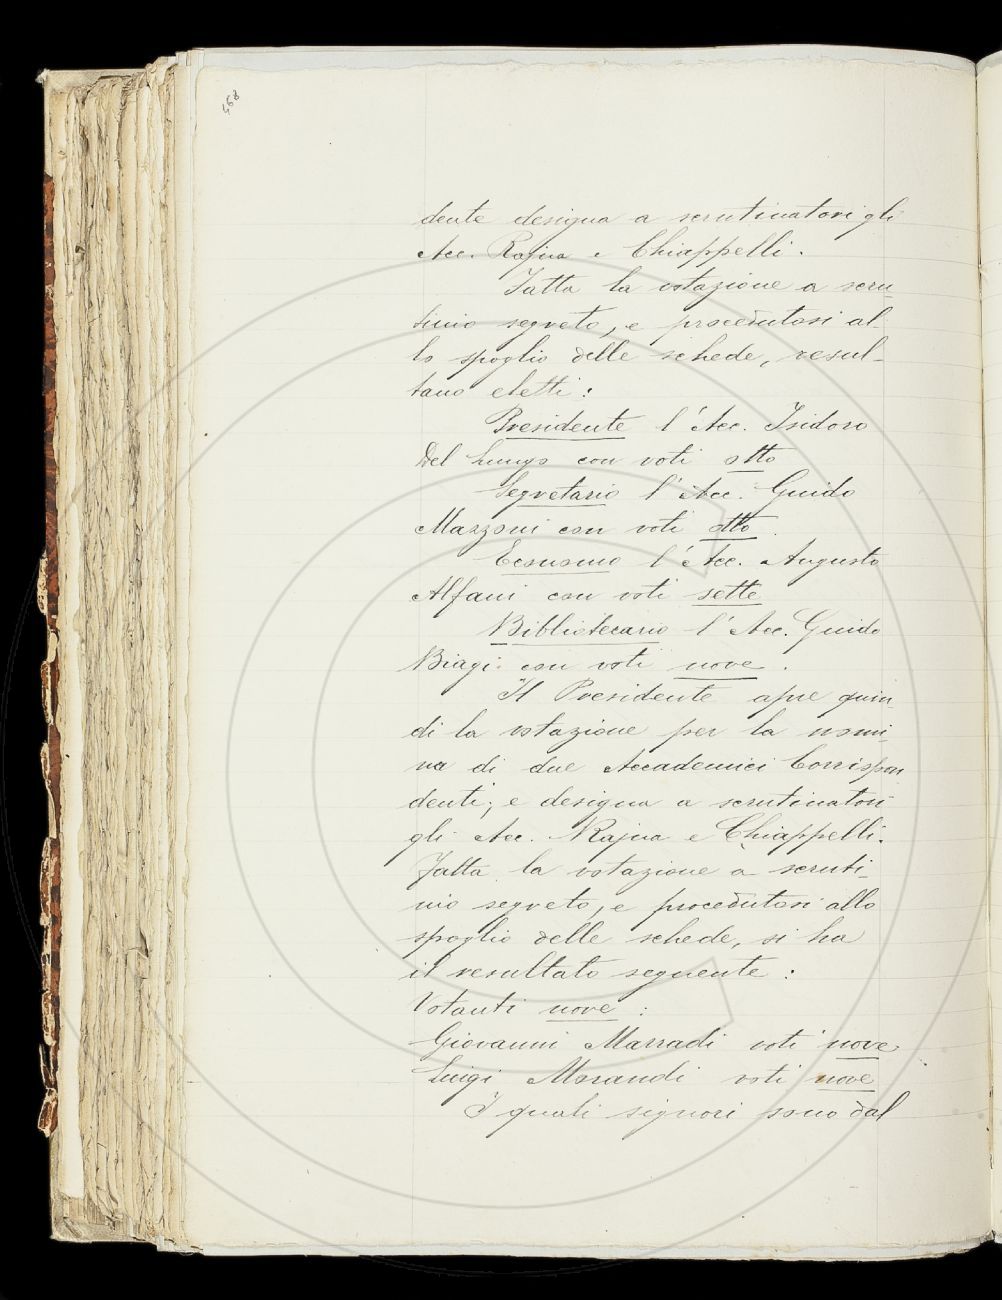 468
dente designa a scrutinatori gli
Acc. Rajna e Chiappelli.
Fatta la votazione a scru-
tinio segreto, e procedutosi al-
lo spoglio delle schede, resul-
tano eletti:
Presidente l'Acc. Isidoro
Del Lungo con voti otto
Segretario l'Acc. Guido
Mazzoni con voti otto.
Economo l'Acc. Augusto
Alfani con voti sette
Bibliotecario l'Acc. Guido
Biagi con voti nove.
Il Presidente apre quin-
di la votazione per la nomi-
na di due Accademici Corrispon
denti; e designa a scrutinatori
gli Acc. Rajna e Chiappelli.
Fatta la votazione a scruti-
nio segreto, e procedutosi allo
spoglio delle schede, si ha
il resultato seguente:
Votanti nove:
Giovanni Marradi voti nove
Luigi Morandi voti nove
I quali signori sono dal